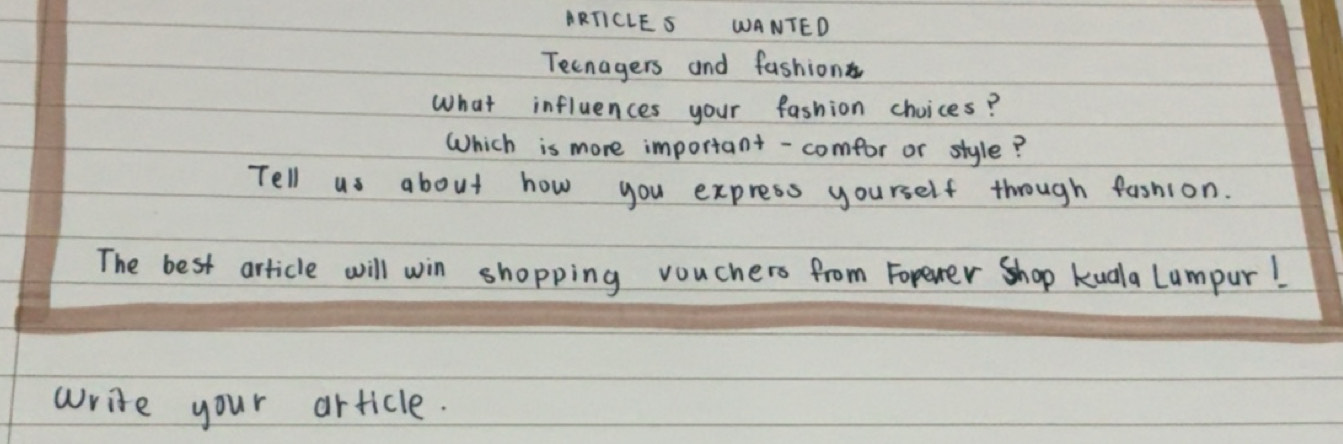 ARTICLES WANTED
Teenagers and fashion
What influences your fashion choices?
Which is more important - comfor or style?
Tell us about how you express yourself through fashion.
The best article will win shopping vouchers from Forever Shop Kuala Lumpur!
Write your article.